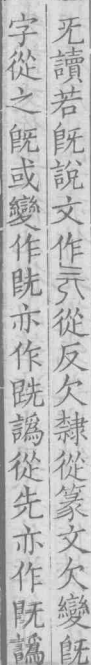 旡讀若旣說文作𣠮從反欠隸從篆文欠變旣
字從之旣或變作旣亦作旣譌從先亦作旣譌